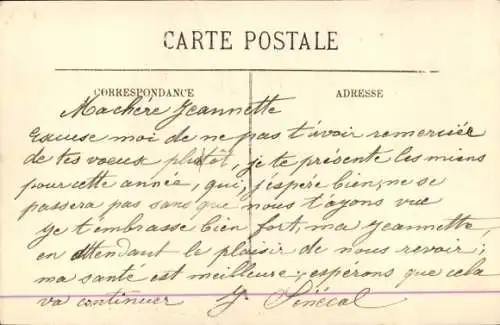 CARTE POSTALE
CORRESPONDANCE
ADRESSE
Ma chère Jeannette
Excuse moi de ne pas t'avoir remerciér
de tes voeux plutôt, je te présente les miens
pour cette année, qui, j'espère bien, ne se
passera pas sans que nous t'ayons vue
Je t'embrasse bien fort, ma Jeannette,
en attendant le plaisir de nous revoir;
ma santé est meilleure; esperons que cela
va continuer Y. Sénécal